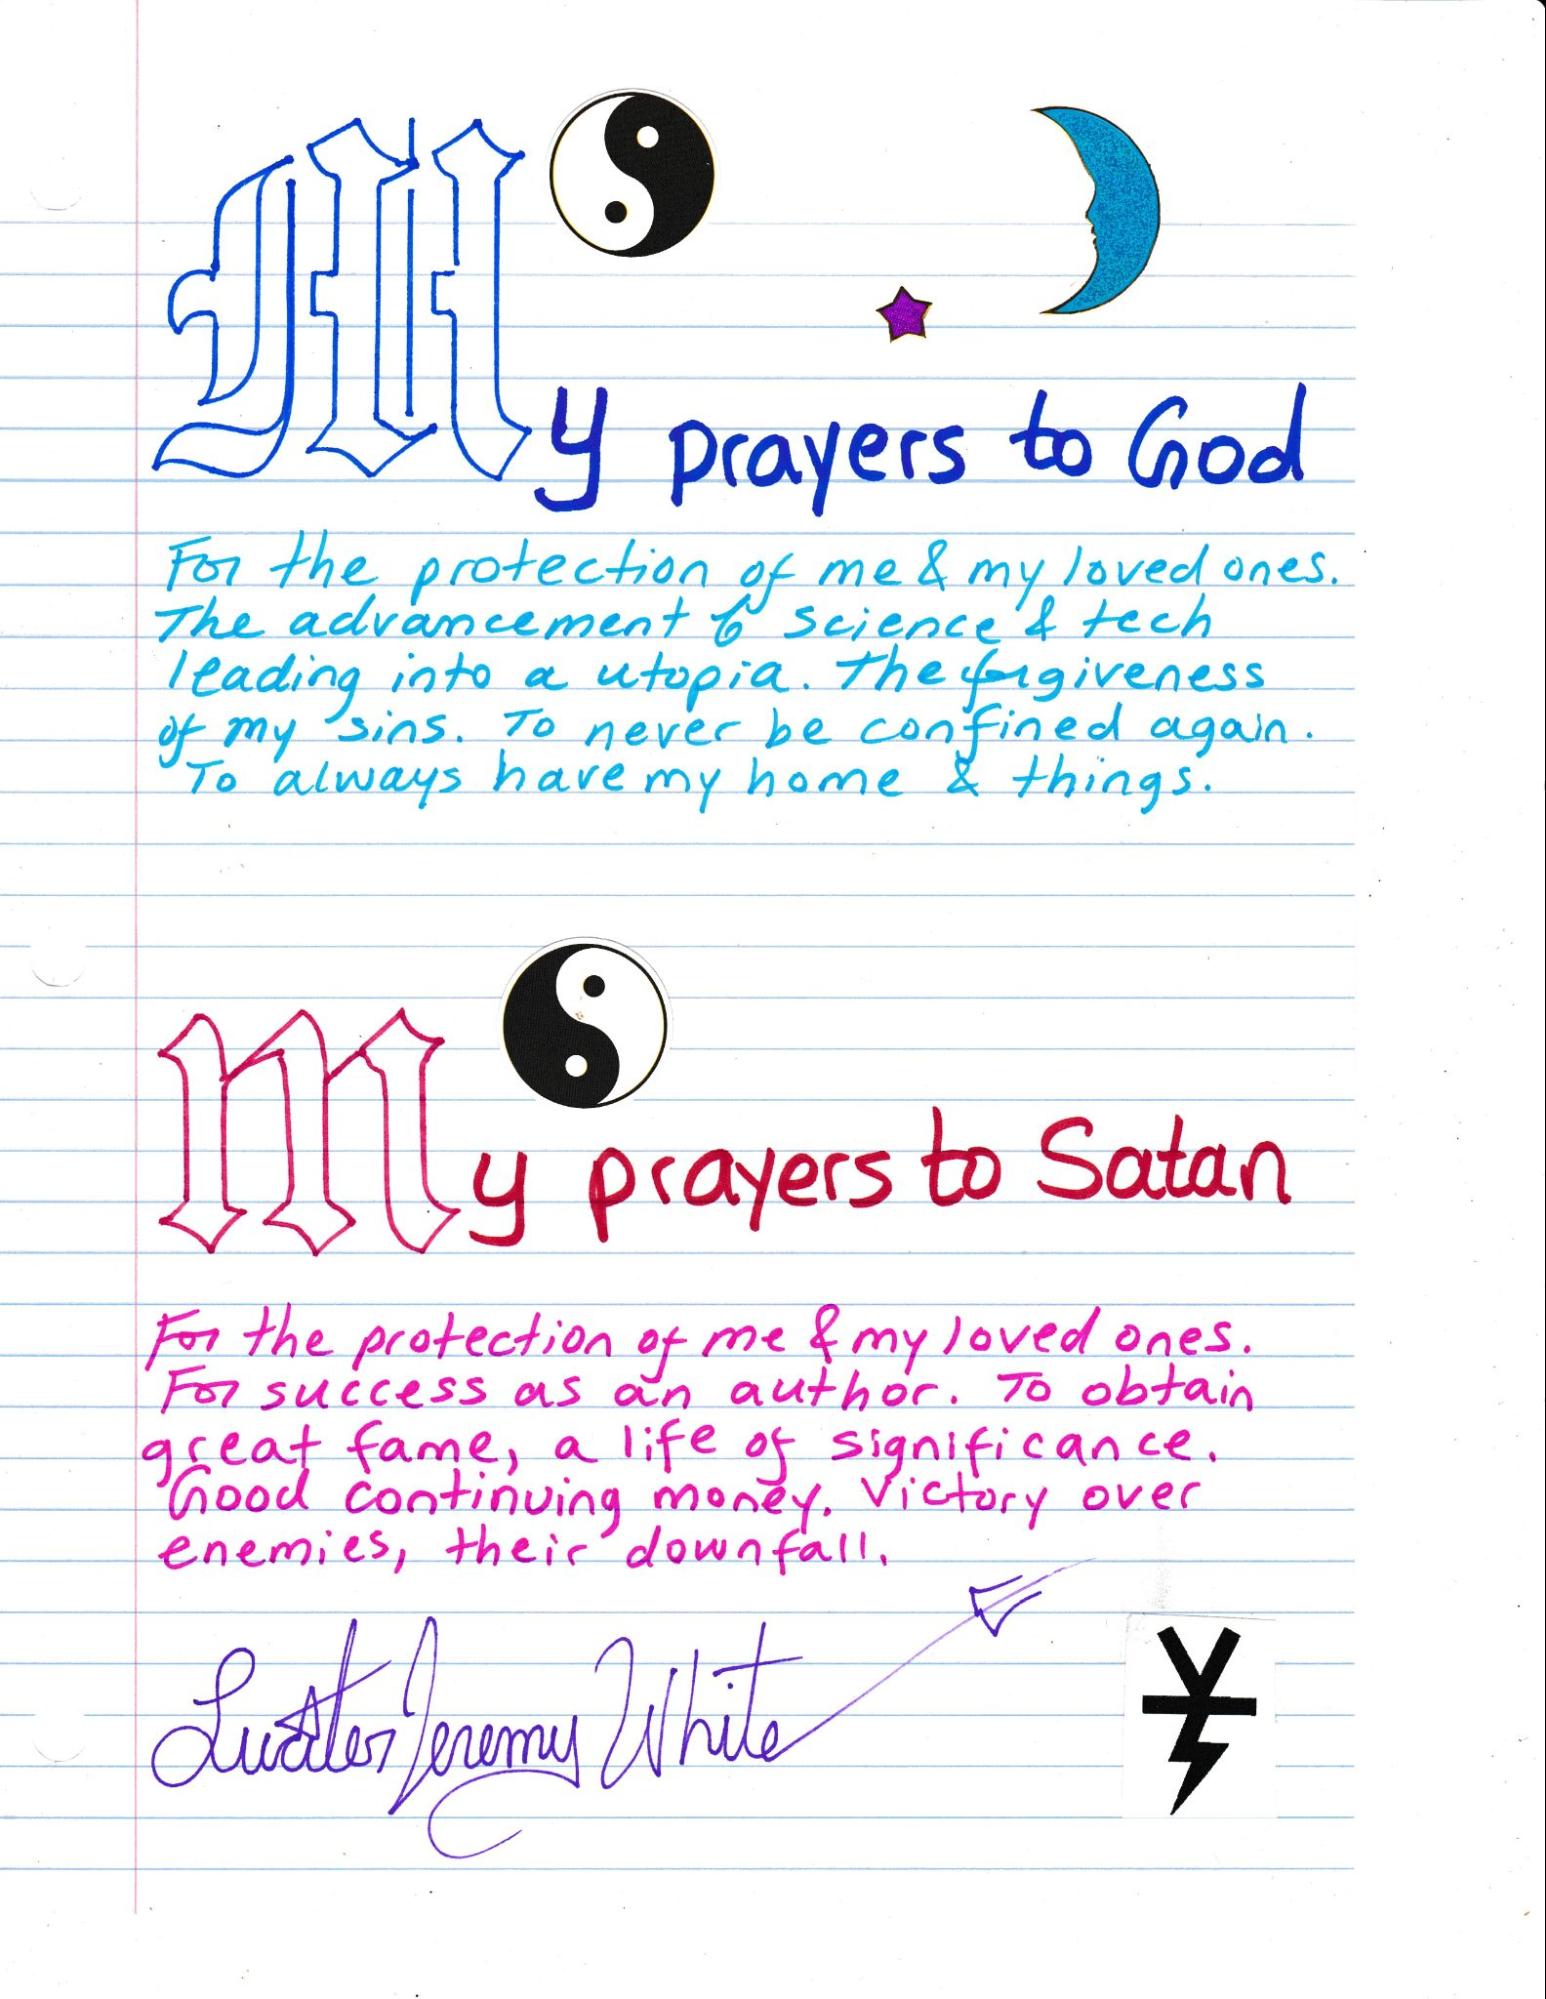 My prayers to God
For the protection of me & my loved ones.
The advancement of science & tech
leading into a utopia. The forgiveness
of my sins. To never be confined again.
To always have my home & things.
My prayers to Satan
For the protection of me & my loved ones.
For success as an author. To obtain
great fame, a life of significance.
Good continuing money. Victory over
enemies, their downfall.
Jeremy White